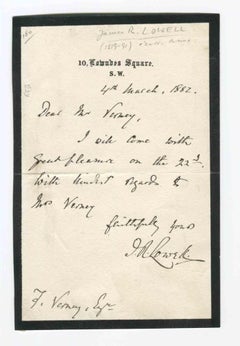 James R. LOWELL
(1819-91)
10, Lowndes Square.
S.W.
4th March, 1882.
Dear Mr Verney,
I will come with
great pleasure on the 22d.
With kindest regards to
Mrs Verney
faithfully yours
J.R. Lowell
F. Verney, Esqre